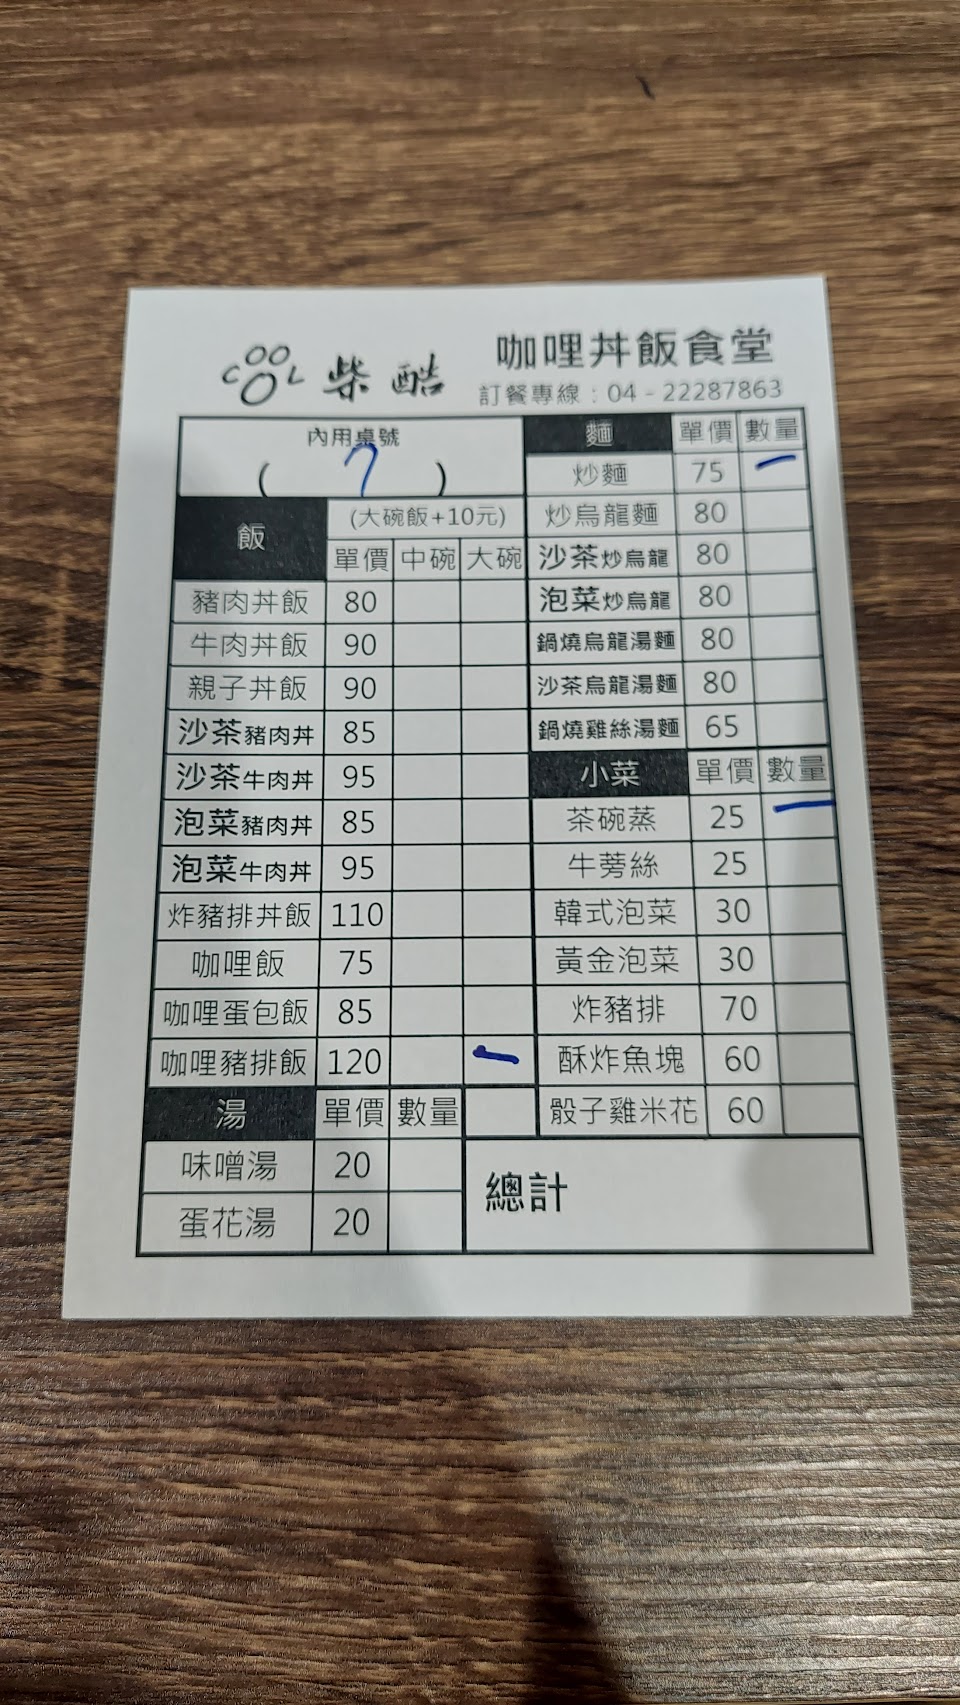 COOL 柴酷 咖哩丼飯食堂
訂餐專線：04 - 22287863
內用桌號
( 7 )
飯 (大碗飯+10元)
單價 中碗 大碗
豬肉丼飯 80
牛肉丼飯 90
親子丼飯 90
沙茶豬肉丼 85
沙茶牛肉丼 95
泡菜豬肉丼 85
泡菜牛肉丼 95
炸豬排丼飯 110
咖哩飯 75
咖哩蛋包飯 85
咖哩豬排飯 120 一
湯 單價 數量
味噌湯 20
蛋花湯 20
麵 單價 數量
炒麵 75 一
炒烏龍麵 80
沙茶炒烏龍 80
泡菜炒烏龍 80
鍋燒烏龍湯麵 80
沙茶烏龍湯麵 80
鍋燒雞絲湯麵 65
小菜 單價 數量
茶碗蒸 25 一
牛蒡絲 25
韓式泡菜 30
黃金泡菜 30
炸豬排 70
酥炸魚塊 60
骰子雞米花 60
總計